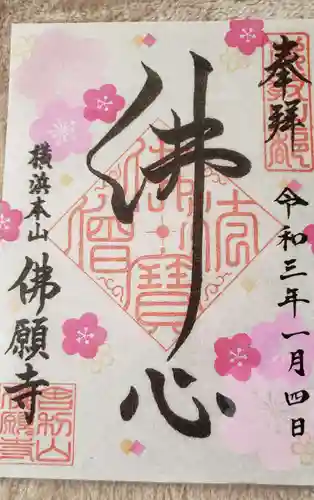 奉拝
令和三年一月四日
佛心
佛法僧寳
横浜本山
佛願寺